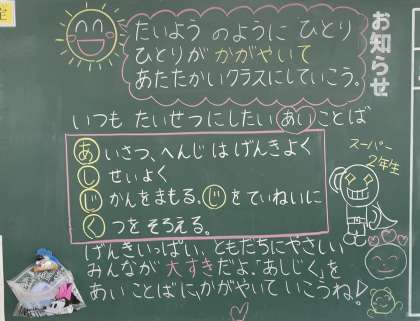 お知らせ
たいよう のように ひとり
ひとりが かがやいて
あたたかいクラスにしていこう。
いつも たいせつにしたい あいことば
あいさつ、へんじ は げんきよく
しせいよく
じかんをまもる、じをていねいに
くつをそろえる。
スーパー
2年生
げんきいっぱい、ともだちにやさしい
みんなが 大すきだよ。「あしじく」を
あいことばに、かがやいていこうね!